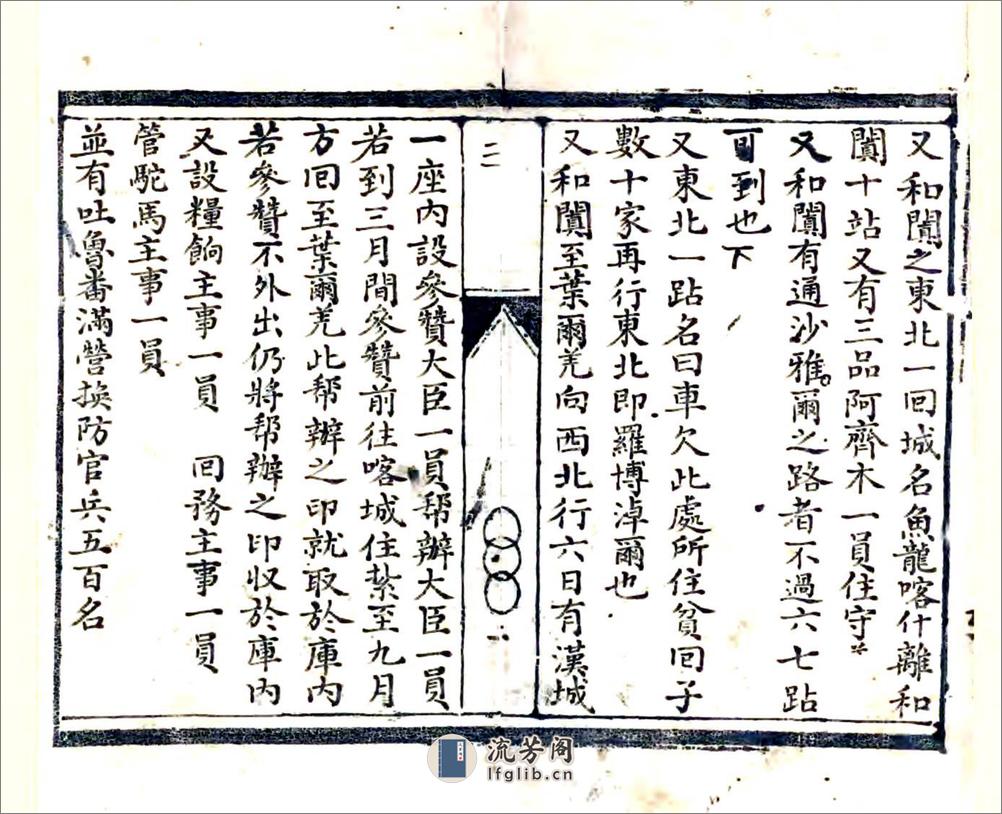 又和闐之東北一回城名魚龍喀什離和
闐十站又有三品阿齊木一員住守
又和闐有通沙雅爾之路者不過六七跕
可到也下
又東北一跕名曰車欠此處所住貧回子
數十家再行東北即羅博淖爾也
又和闐至葉爾羌向西北行六日有漢城
二
一座內設參贊大臣一員帮辦大臣一員
若到三月間參贊前往喀城住紮至九月
方回至葉爾羌此帮辦之印就取於庫內
若參贊不外出仍將帮辦之印収於庫內
又設糧餉主事一員　回務主事一員
管駝馬主事一員
並有吐魯番滿營換防官兵五百名
流芳阁
lfglib.cn